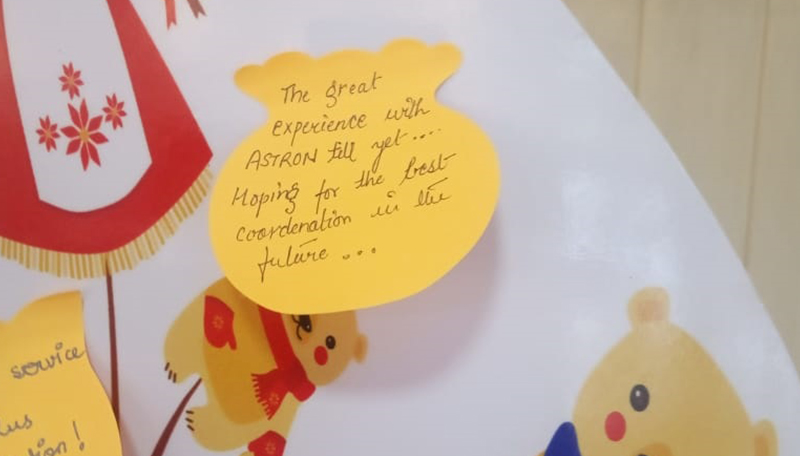 The great
experience with
ASTRON till yet....
Hoping for the best
coordenation in the
future ...
service
tion!